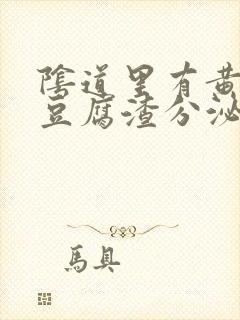 陰道里有黄
豆腐渣分泌
馬具